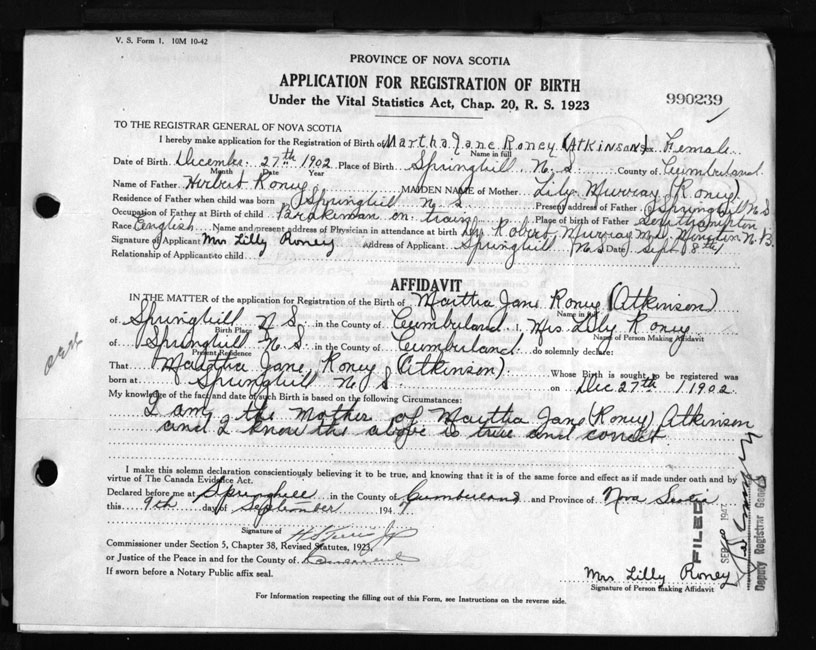 V. S. Form 1. 10M 10-42
PROVINCE OF NOVA SCOTIA
APPLICATION FOR REGISTRATION OF BIRTH
Under the Vital Statistics Act, Chap. 20, R. S. 1923
990239
TO THE REGISTRAR GENERAL OF NOVA SCOTIA
I hereby make application for the Registration of Birth of Martha Jane Roney (Atkinson) Sex Female
Name in full
Date of Birth December 27th 1902 Place of Birth Springhill N. S. County of Cumberland
Month Date Year
Name of Father Herbert Roney MAIDEN NAME of Mother Lily Murray (Roney)
Residence of Father when child was born Springhill N. S. Present address of Father Springhill N S
Occupation of Father at Birth of child Brakeman on train Place of birth of Father Southampton
Race English Name and present address of Physician in attendance at birth Dr Robert Murray N. B.
Signature of Applicant Mrs Lilly Roney Address of Applicant Springhill (N. S. Date) Sept 8th
Relationship of Applicant to child
AFFIDAVIT
IN THE MATTER of the application for Registration of the Birth of Martha Jane Roney (Atkinson)
Name in full
of Springhill N S. in the County of Cumberland I, Mrs Lilly Roney
Birth Place Name of Person Making Affidavit
of Springhill N. S. in the County of Cumberland do solemnly declare:
Present Residence
That Martha Jane Roney (Atkinson) Whose Birth is sought to be registered was
born at Springhill N. S. on Dec 27th 1902
My knowledge of the fact and date of such Birth is based on the following Circumstances:
I am the Mother of Martha Jane (Roney) Atkinson
and I know the above is true and correct
I make this solemn declaration conscientiously believing it to be true, and knowing that it is of the same force and effect as if made under oath and by
virtue of The Canada Evidence Act.
Declared before me at Springhill in the County of Cumberland and Province of Nova Scotia
this 9th day of September 1947
Signature of
Commissioner under Section 5, Chapter 38, Revised Statutes, 1923,
or Justice of the Peace in and for the County of Cumberland
If sworn before a Notary Public affix seal.
Mrs Lilly Roney
Signature of Person making Affidavit
FILED
SEP 1947
Deputy Registrar General
For Information respecting the filling out of this Form, see Instructions on the reverse side.